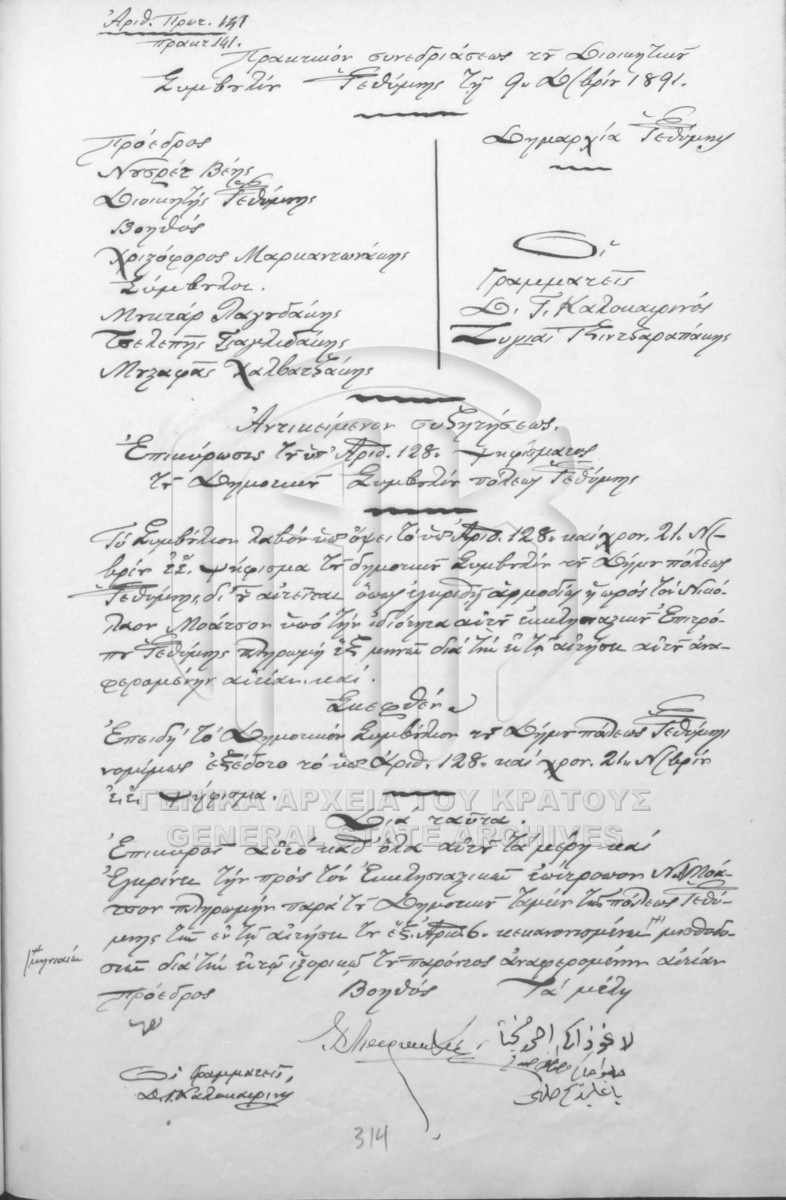 Ἀριθ. Πρωτ. 141
πρακτ 141.
Πρακτικὸν συνεδριάσεως τοῦ Διοικητικοῦ
Συμβουλίου Ῥεθύμνης τῇ 9 Δ/βρίου 1891.
Πρόεδρος
Νουσρὲτ Βέης
Διοικητής Ῥεθύμνης
Βοηθός
Χριστόφορος Μαρκαντωνάκης
Σύμβουλοι.
Μουκτάρ Λαγουδάκης
Τσελεπῆς
Μουσταφᾶς Χαλβατζάκης
Δημαρχία Ῥεθύμνης
Οἱ
Γραμματεῖς
Δ. Γ. Καλοκαιρινός
Ἀντικείμενον συζητήσεως.
Ἐπικύρωσις τοῦ ὑπ' Ἀριθ. 128. ψηφίσματος
τοῦ Δημοτικοῦ Συμβουλίου πόλεως Ῥεθύμνης
Τὸ Συμβούλιον λαβὸν ὑπ' ὄψει τὸ ὑπ' Ἀριθ. 128. καὶ χρον. 21. Ν/
βρίου ἔ.ἔ. ψήφισμα τοῦ δημοτικοῦ Συμβουλίου τοῦ Δήμου πόλεως
Ῥεθύμνης, δι' οὗ αἰτεῖται ὅπως ἐγκριθῇ ἁρμοδίως ἡ πρὸς τὸν Νικό-
λαον Μοάτσον ὑπὸ τὴν ἰδιότητα αὐτοῦ ἐκκλησιαστικοῦ Ἐπιτρό-
που Ῥεθύμνης πληρωμή ἓξ μηνῶν διὰ τὴν ἐν τῇ αἰτήσει αὐτοῦ ἀνα-
φερομένην αἰτίαν, καί.
Σκεφθέν
Ἐπειδὴ τὸ Δημοτικὸν Συμβούλιον τοῦ Δήμου πόλεως Ῥεθύμνης
νομίμως ἐξέδοτο τὸ ὑπ' Ἀριθ. 128. καὶ χρον. 21. Ν/βρίου
ἔ.ἔ. ψήφισμα.
Διὰ ταῦτα.
Ἐπικυροῖ αὐτὸ καθ' ὅλα αὐτοῦ τὰ μέρη καὶ
Ἐγκρίνει τὴν πρὸς τὸν Ἐκκλησιαστικὸν ἐπίτροπον Ν. Μοά-
τσον πληρωμὴν παρὰ τοῦ Δημοτικοῦ ταμείου τῆς πόλεως Ῥεθύ-
μνης τῶν ἐν τῇ αἰτήσει του ἓξ Ἀριθ. 6. κεκανονισμένων μισθοδο-
σιῶν διὰ τὴν ἐν τῷ ἱστορικῷ τοῦ παρόντος ἀναφερομένην αἰτίαν
μηνιαίων
Πρόεδρος Βοηθός Τὰ μέλη
Οἱ Γραμματεῖς,
Δ. Γ. Καλοκαιρινός
314
ΓΕΝΙΚΑ ΑΡΧΕΙΑ ΤΟΥ ΚΡΑΤΟΥΣ
GENERAL STATE ARCHIVES